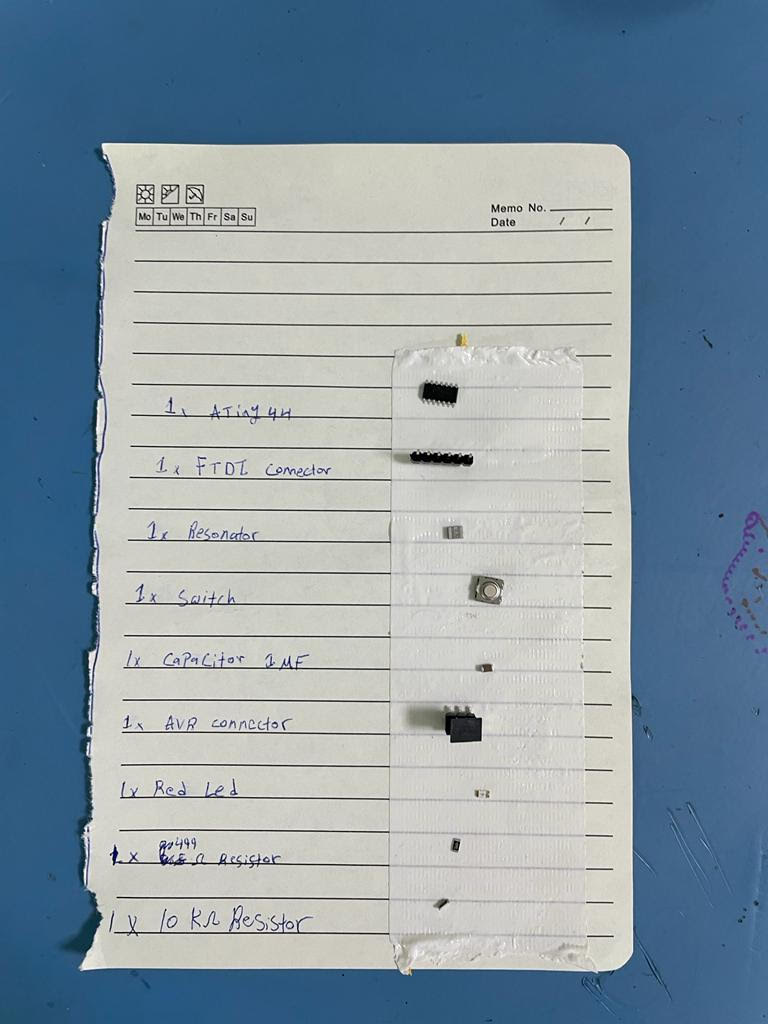 Mo Tu We Th Fr Sa Su
Memo No.
Date / /
1x ATiny 44
1x FTDI connector
1x Resonator
1x Switch
1x Capacitor 1MF
1x AVR connector
1x Red Led
1x 499 Ω Resistor
1x 10 KΩ Resistor